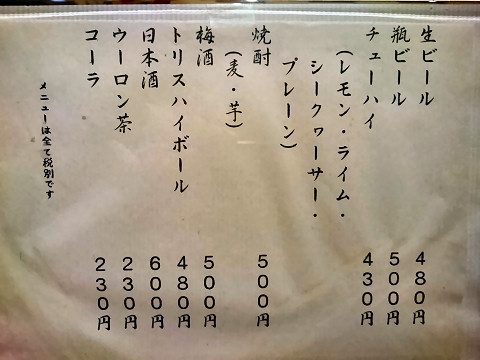 生ビール　480円
瓶ビール　500円
チューハイ　430円
（レモン・ライム・
シークヮーサー・
プレーン）
焼酎　500円
（麦・芋）
梅酒　500円
トリスハイボール　480円
日本酒　600円
ウーロン茶　230円
コーラ　230円
メニューは全て税別です